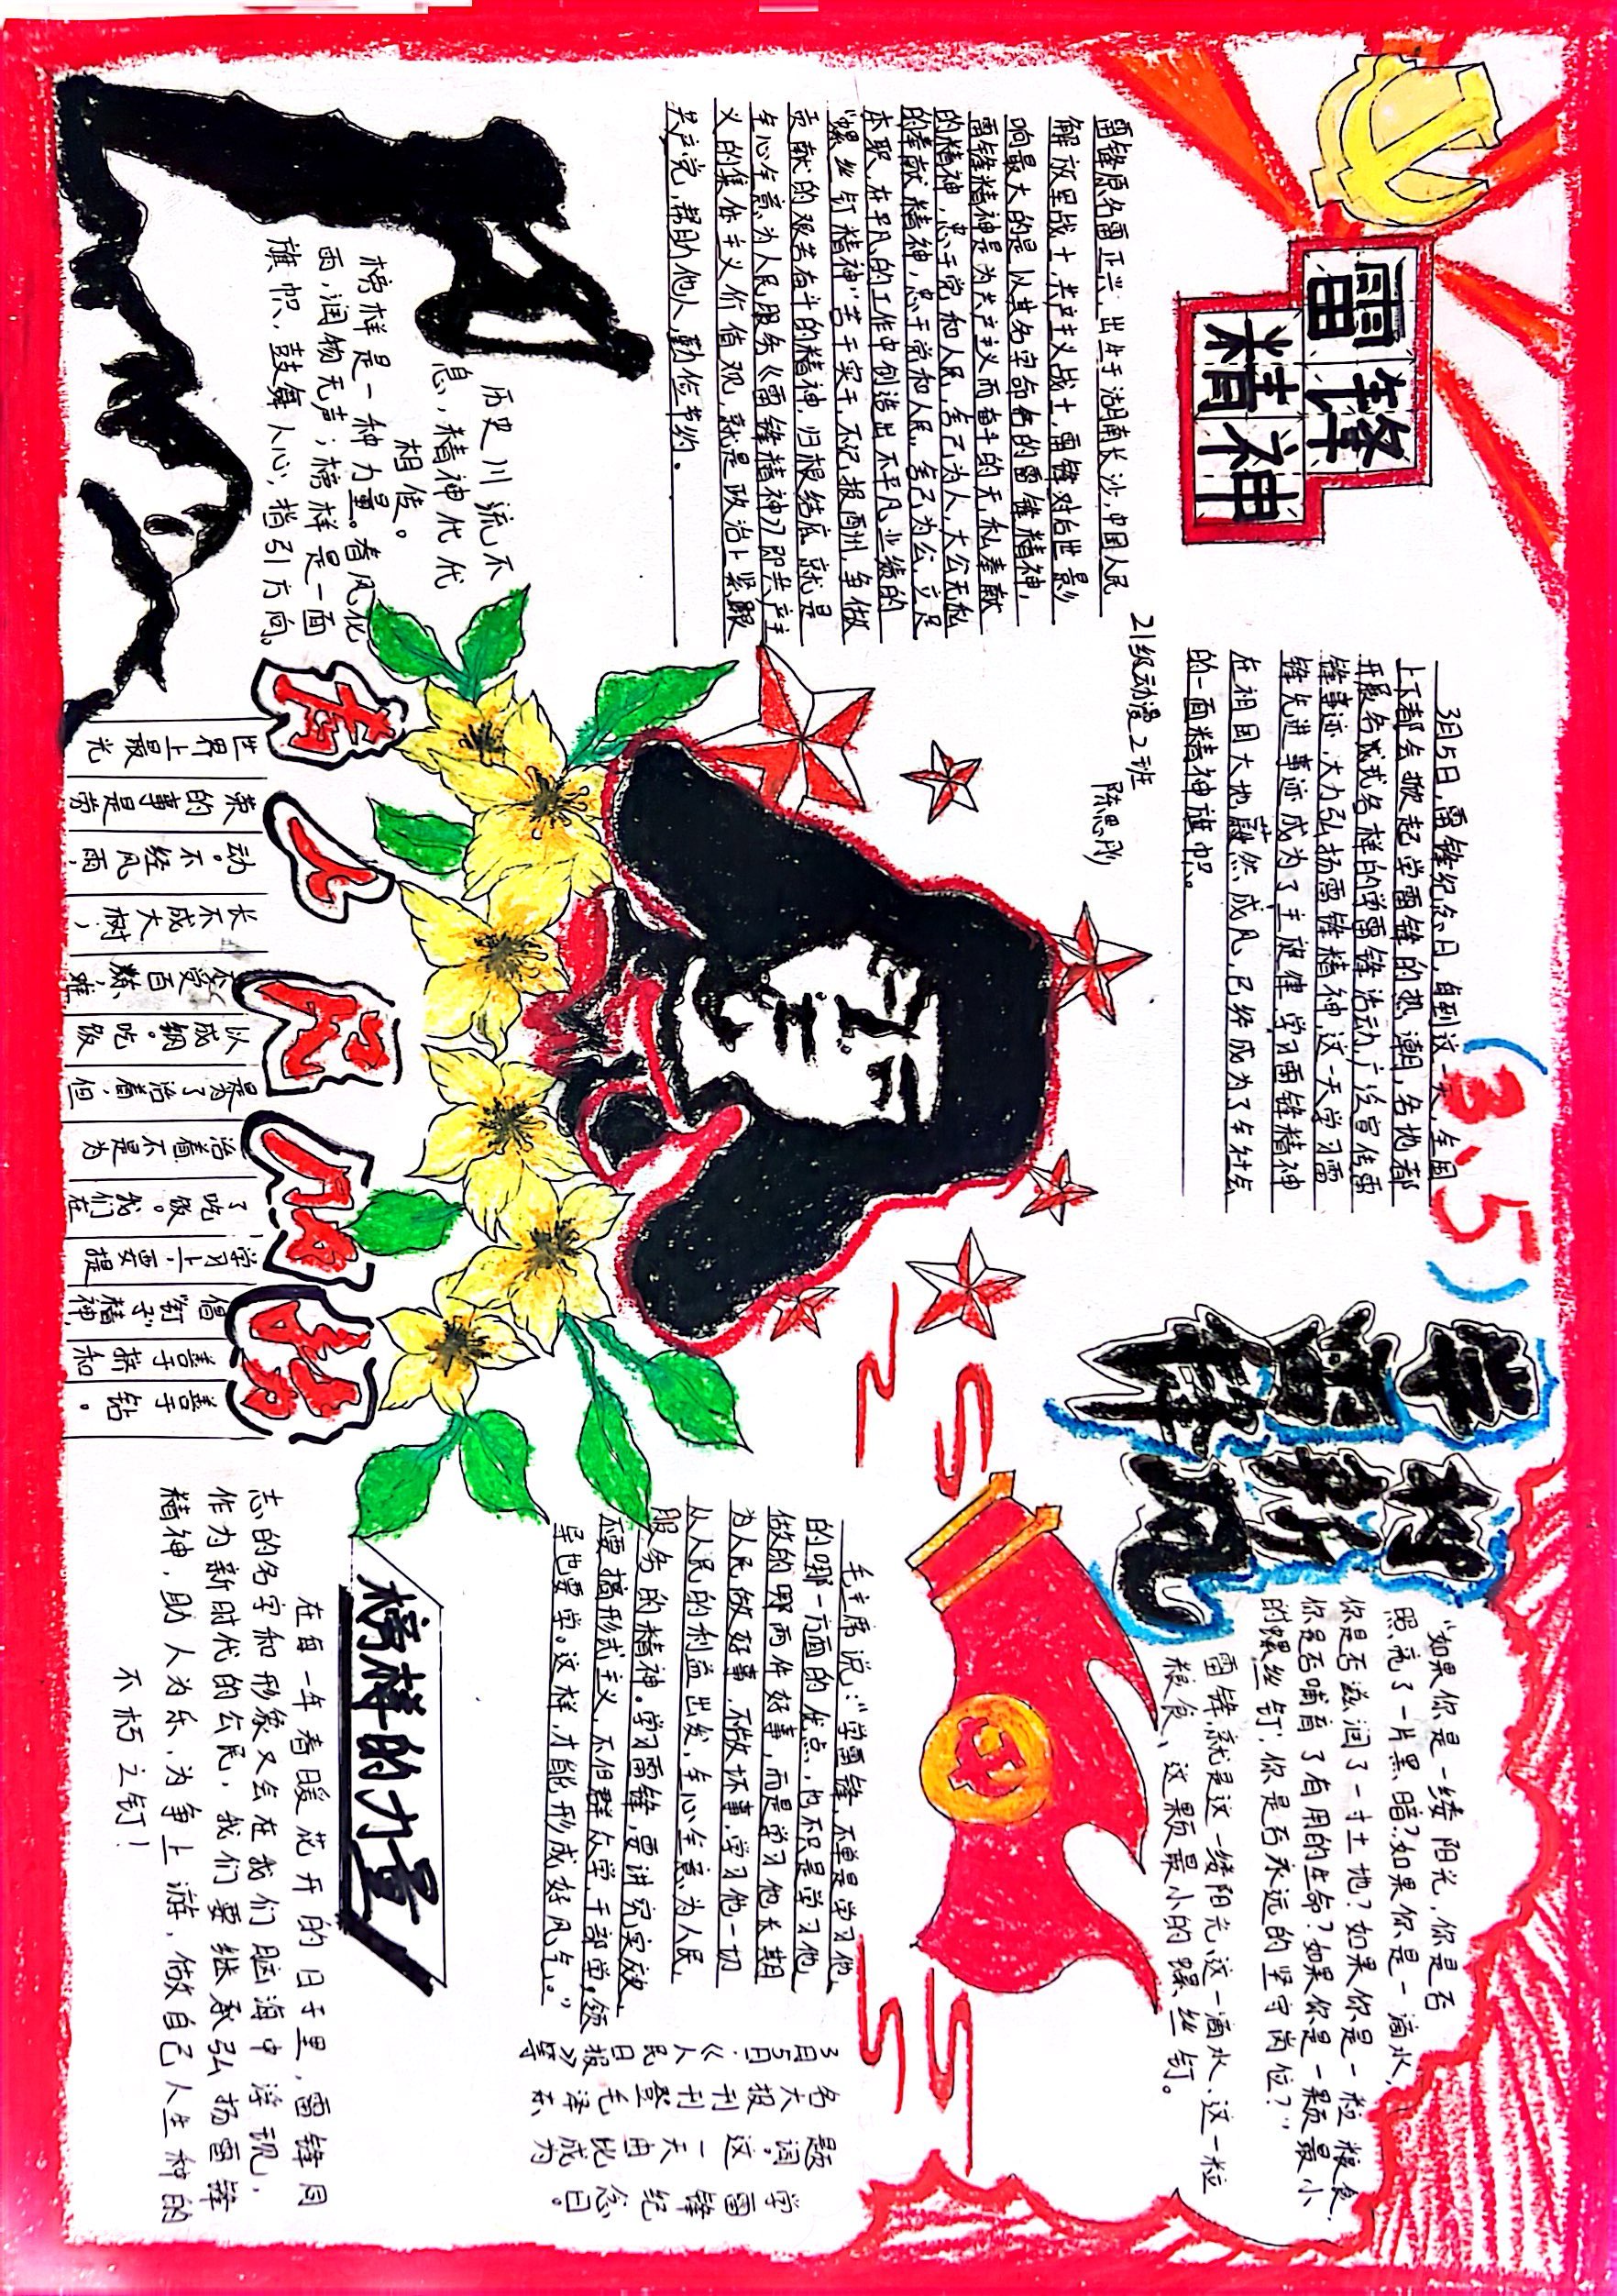 雷锋
精神
雷锋原名雷正兴，出生于湖南长沙，中国人民
解放军战士，共产主义战士，雷锋对后世影
响最大的是以其名字命名的雷锋精神，
雷锋精神是为共产主义而奋斗的无私奉献
的精神，忠于党和人民，舍己为人，大公无私
的奉献精神，忠于党和人民，舍己为公，立足
本职，在平凡的工作中创造出不平凡业绩的
“螺丝钉精神”苦干实干，不记报酬，争做
贡献的艰苦奋斗的精神，归根结底，就是
全心全意为人民服务《雷锋精神》即共产主
义的集体主义价值观，就是政治上紧跟
共产党，帮助他人，勤俭节约。
21级动漫2班
陈思彤
(3.5)
3月5日，雷锋纪念日，每到这一天，全国
上下都会掀起学雷锋的热潮，各地都
开展各式各样的学雷锋活动，广泛宣传雷
锋事迹，大力弘扬雷锋精神这一天学习雷
锋先进事迹成为了主旋律学习雷锋精神
在祖国大地蔚然成风，已经成为了全社会
的一面精神旗帜。
学雷锋
树新风
“如果你是一缕阳光，你是否
照亮了一片黑暗？如果你是一滴水，
你是否滋润了一寸土地？如果你是一粒粮食，
你是否哺育了有用的生命？如果你是一颗最小
的螺丝钉，你是否永远的坚守岗位？”
雷锋就是这一缕阳光、这一滴水、这一粒
粮食、这颗最小的螺丝钉。
历史川流不
息，精神代代
相传。
榜样是一种力量。春风化
雨，润物无声；榜样是一面
旗帜，鼓舞人心，指引方向。
为人民服务
世界上最光
荣的事是劳
动。不经风雨，
长不成大树，
不受百炼，难
以成钢。吃饭
是为了活着，但
活着不是为
了吃饭。我们在
学习上，要提
倡“钉子”精神，
善于挤和
善于钻。
毛主席说：“学雷锋，不单是学习他
的哪一方面的优点，也不只是学习他
做的哪两件好事，而是学习他长期
为人民做好事，不做坏事，学习他一切
从人民的利益出发，全心全意为人民
服务的精神。学习雷锋，要讲究实效，
不要搞形式主义，不但群众学，干部学，领
导也要学。这样，才能形成好风气。”
3月5日，《人民日报》等
各大报刊刊登毛泽东
题词。这一天由此成为
学雷锋纪念日。
榜样的力量
在每一年春暖花开的日子里，雷锋同
志的名字和形象又会在我们脑海中浮现，
作为新时代的公民，我们要继承弘扬雷锋
精神，助人为乐，为争上游，做自己人生种的
不朽之钉！